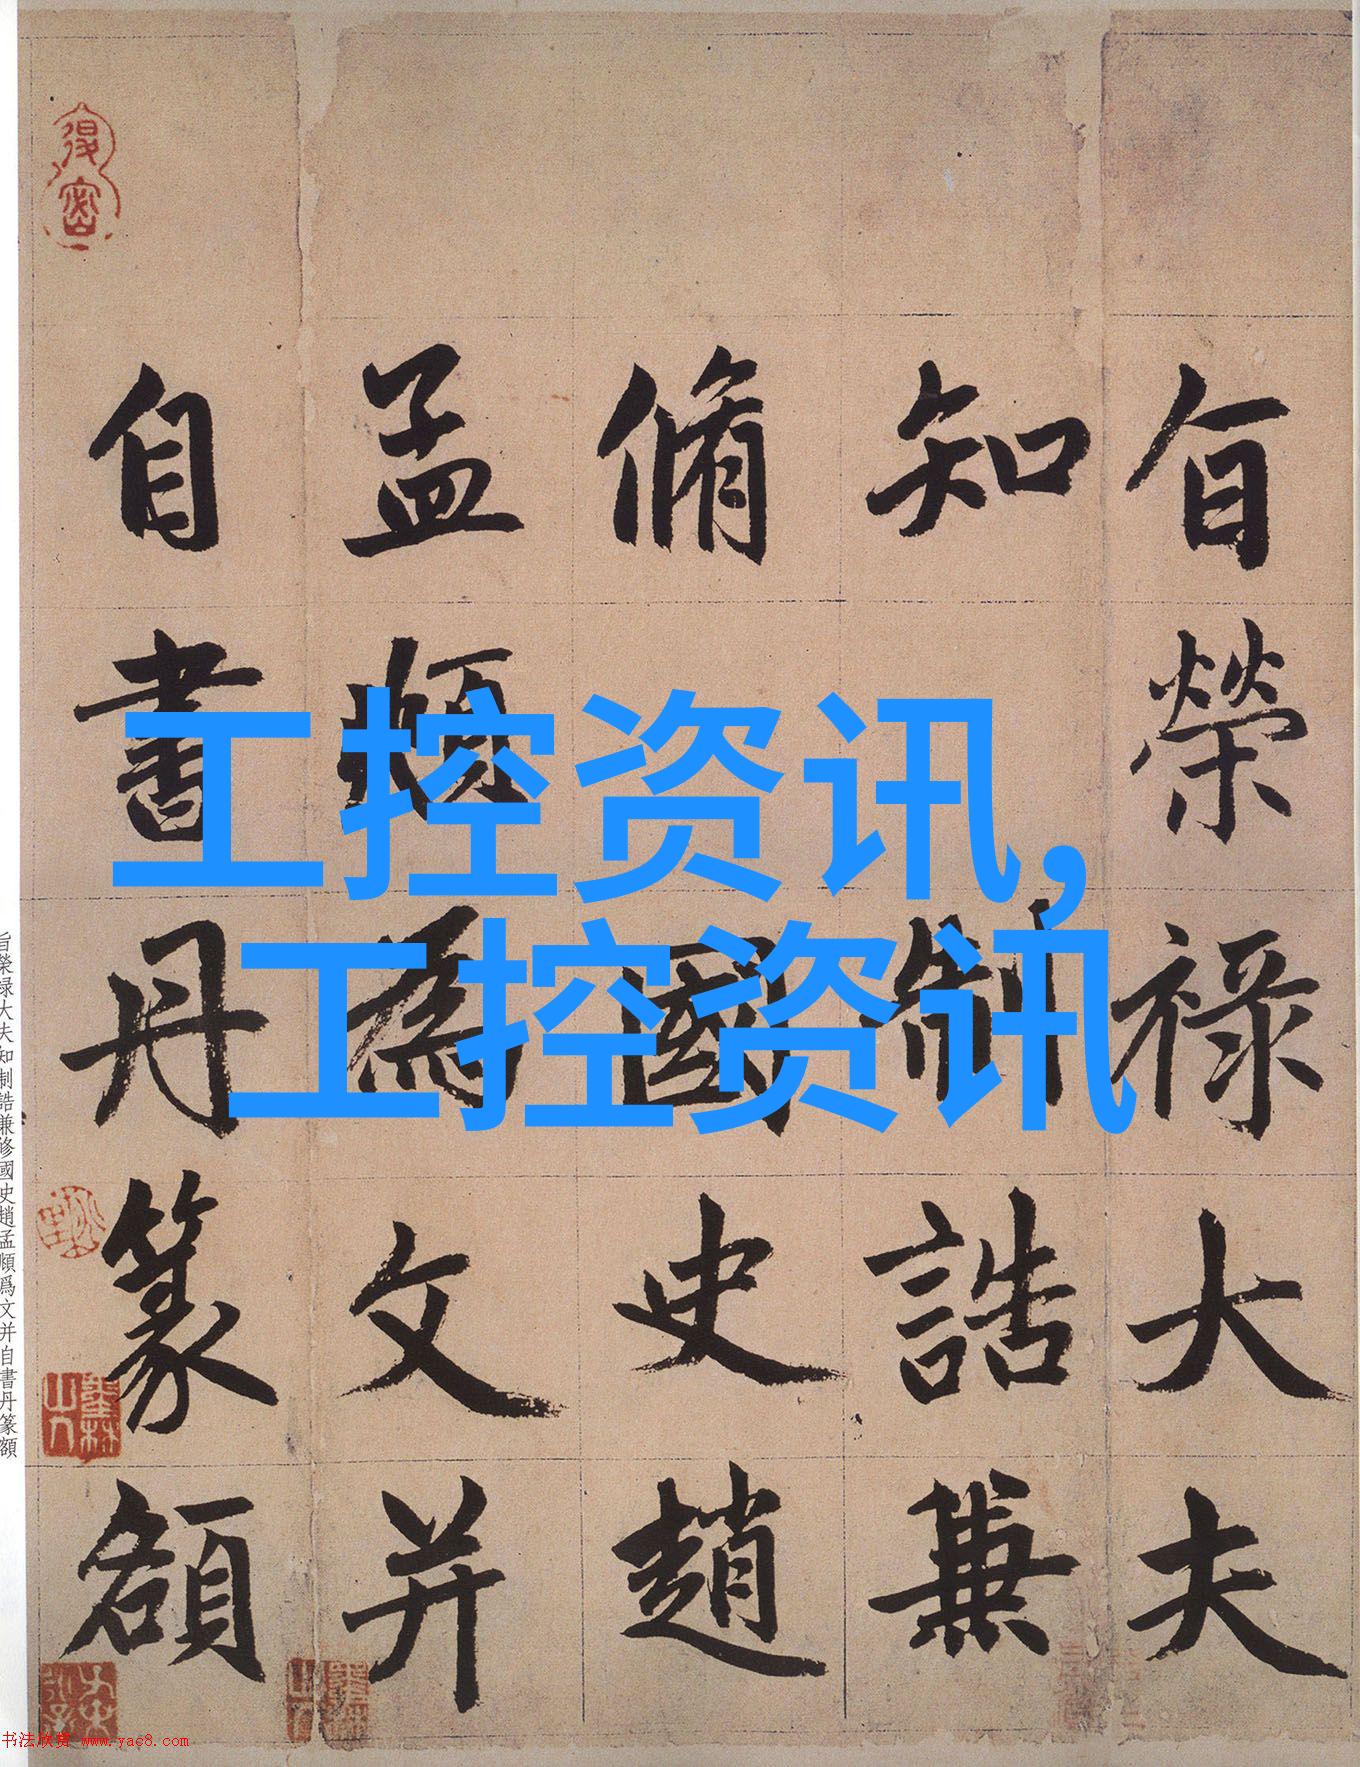 旨榮祿大夫
知制誥兼
脩國史趙
孟頫為文并
自書丹篆額
工控资讯,
工控资讯
旨榮祿大夫知制誥兼修國史趙孟頫爲文并自書丹篆額
书法欣赏 www.yac8.com